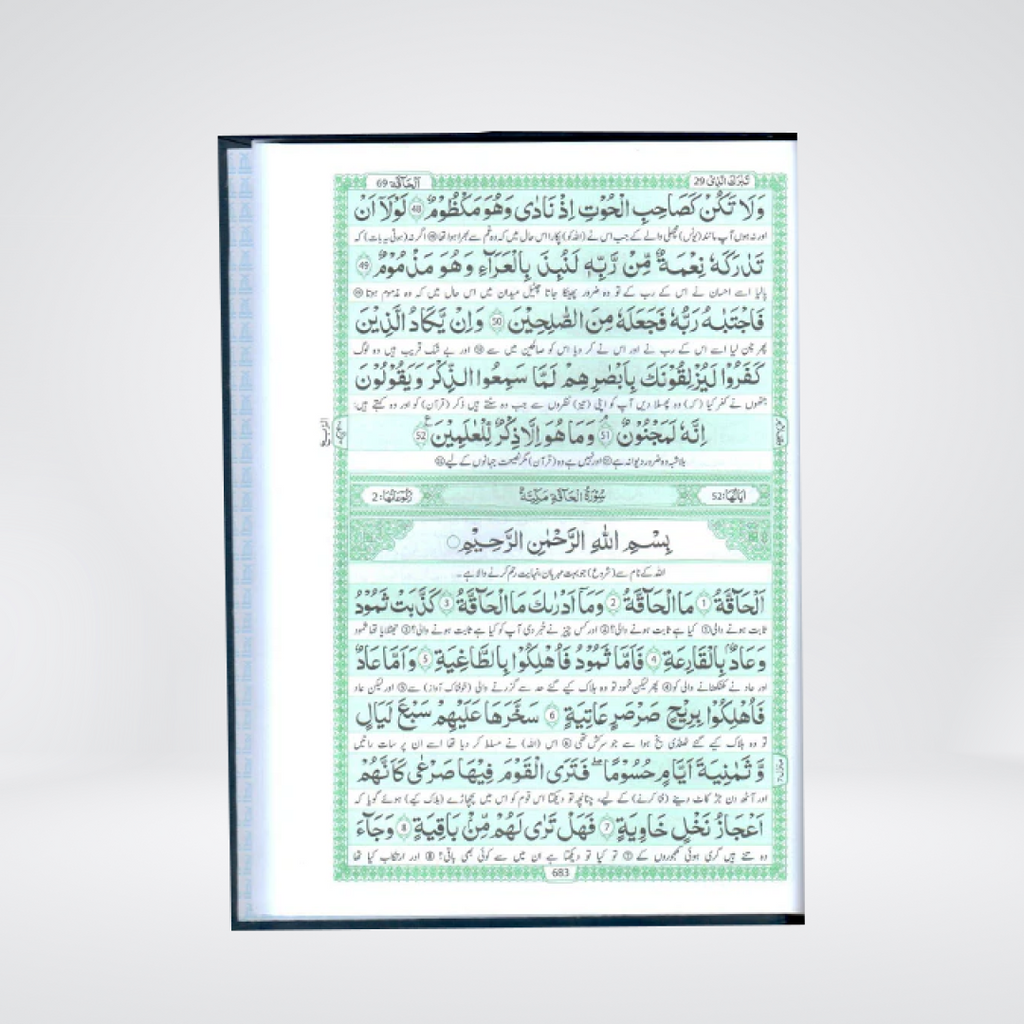 تَبٰرَكَ الَّذِیْ 29
اَلْحَآقَّة 69
وَلَا تَكُنْ كَصَاحِبِ الْحُوْتِ اِذْ نَادٰى وَهُوَ مَكْظُوْمٌ 48 لَوْلَآ اَنْ
اور نہ ہوں آپ مانند (یونس) مچھلی والے کے جب اس نے (اللہ کو) پکارا اس حال میں کہ وہ غم سے بھرا ہوا تھا 48 اگر نہ (ہوتی یہ بات) کہ
تَدٰرَكَهٗ نِعْمَةٌ مِّنْ رَّبِّهٖ لَنُبِذَ بِالْعَرَآءِ وَهُوَ مَذْمُوْمٌ 49
پالیا اسے احسان نے اس کے رب کے تو وہ ضرور پھینکا جاتا چٹیل میدان میں اس حال میں کہ وہ مذموم ہوتا 49
فَاجْتَبٰىهُ رَبُّهٗ فَجَعَلَهٗ مِنَ الصّٰلِحِيْنَ 50 وَاِنْ يَّكَادُ الَّذِيْنَ
پھر چن لیا اسے اس کے رب نے اور اس نے کر دیا اس کو صالحین میں سے 50 اور بے شک قریب ہیں وہ لوگ
كَفَرُوْا لَيُزْلِقُوْنَكَ بِاَبْصٰرِهِمْ لَمَّا سَمِعُوا الذِّكْرَ وَيَقُوْلُوْنَ
جنھوں نے کفر کیا (کہ) وہ پھسلا دیں آپ کو اپنی (تیز) نظروں سے جب وہ سنتے ہیں ذکر (قرآن) کو اور وہ کہتے ہیں:
اِنَّهٗ لَمَجْنُوْنٌ 51 وَمَا هُوَ اِلَّا ذِكْرٌ لِّلْعٰلَمِيْنَ 52
بلاشبہ وہ ضرور دیوانہ ہے 51 اور نہیں ہے وہ (قرآن) مگر نصیحت جہانوں کے لیے 52
اٰيَاتُهَا: 52
سُوْرَةُ الْحَآقَّةِ مَكِّيَّةٌ
رُكُوْعَاتُهَا: 2
بِسْمِ اللّٰهِ الرَّحْمٰنِ الرَّحِيْمِ
اللہ کے نام سے (شروع) جو بہت مہربان، نہایت رحم کرنے والا ہے۔
اَلْحَآقَّةُ 1 مَا الْحَآقَّةُ 2 وَمَآ اَدْرٰىكَ مَا الْحَآقَّةُ 3 كَذَّبَتْ ثَمُوْدُ
ثابت ہونے والی 1 کیا ہے ثابت ہونے والی؟ 2 اور کس چیز نے خبر دی آپ کو کیا ہے ثابت ہونے والی؟ 3 جھٹلایا تھا ثمود
وَعَادٌۢ بِالْقَارِعَةِ 4 فَاَمَّا ثَمُوْدُ فَاُهْلِكُوْا بِالطَّاغِيَةِ 5 وَاَمَّا عَادٌ
اور عاد نے کھٹکھٹانے والی کو 4 پھر لیکن ثمود تو وہ ہلاک کیے گئے حد سے گزرنے والی (خوفناک آواز) سے 5 اور لیکن عاد
فَاُهْلِكُوْا بِرِيْحٍ صَرْصَرٍ عَاتِيَةٍ 6 سَخَّرَهَا عَلَيْهِمْ سَبْعَ لَيَالٍ
تو وہ ہلاک کیے گئے ٹھنڈی یخ ہوا سے جو سرکش تھی 6 اس (اللہ) نے مسلط کر دیا تھا اسے ان پر سات راتیں
وَّثَمٰنِيَةَ اَيَّامٍ حُسُوْمًا فَتَرَى الْقَوْمَ فِيْهَا صَرْعٰى كَاَنَّهُمْ
اور آٹھ دن جڑ کاٹ دینے (فنا کرنے) کے لیے، چنانچہ تو دیکھتا اس قوم کو اس میں پچھاڑے (ہلاک کیے) ہوئے گویا کہ
اَعْجَازُ نَخْلٍ خَاوِيَةٍ 7 فَهَلْ تَرٰى لَهُمْ مِّنْۢ بَاقِيَةٍ 8 وَجَآءَ
وہ تنے ہیں گری ہوئی کھجوروں کے 7 تو کیا تو دیکھتا ہے ان میں سے کوئی بھی باقی؟ 8 اور ارتکاب کیا تھا
683